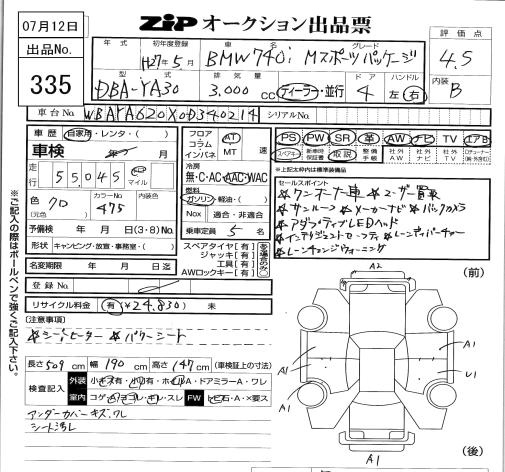 07月12日
ZIP オークション出品票
出品No.
335
年式 初年度登録 車名 グレード
H27年5月 BMW740i Mスポーツパッケージ
評価点
4.5
型式 排気量 ドア ハンドル
DBA-YA30 3,000cc ディーラー・並行 4 左 右
内装
B
車台No. WBAYA620X0D340214 シリアルNo.
車歴 自家用・レンタ・( )
車検 年 月
走行 55045 km マイル
色 (元色) 黒 カラーNo. 475 内装色
予備検 年 月 日(3・8)No.
形状 キャンピング・放宣・事務室・( )
名変期限 年 月 日迄
登録No.
リサイクル料金 有(¥24,830) 未
フロア コラム インパネ AT MT 速
冷房
無・C・AC AAC・WAC
燃料
ガソリン・軽油・( )
Nox 適合・非適合
乗車定員 5名
スペアタイヤ[有]
ジャッキ[有]
工具[有]
AWロックキー[有]
PS PW SR 革 AW ナビ TV エアB
スペアキー 新車時保証書 取説 整備手帳 社外AW 社外ナビ 社外TV
*上記太枠内は標準装備品
セールスポイント
☆ワンオーナー車 ☆ユーザー買取
☆サンルーフ ☆メーカーナビ ☆バックカメラ
☆アダプティブLEDヘッド
☆レーンチェンジウォーニング
[注意事項]
☆シートヒーター ☆パワーシート
長さ509cm 幅190cm 高さ147cm (車検証上の寸法)
検査記入
外装 小キズ有・小凹有・ホイルA・ドアミラーA・ワレ
室内 コゲ・A・ヨゴレ・キレ・スレ FW トビ石・A・×要ス
アンダーカバーキズ、ワレ
シート汚レ
※ご記入の際はボールペンで強くご記入下さい。
(前)
A2
A1
A1
U1
A1
A1
(後)